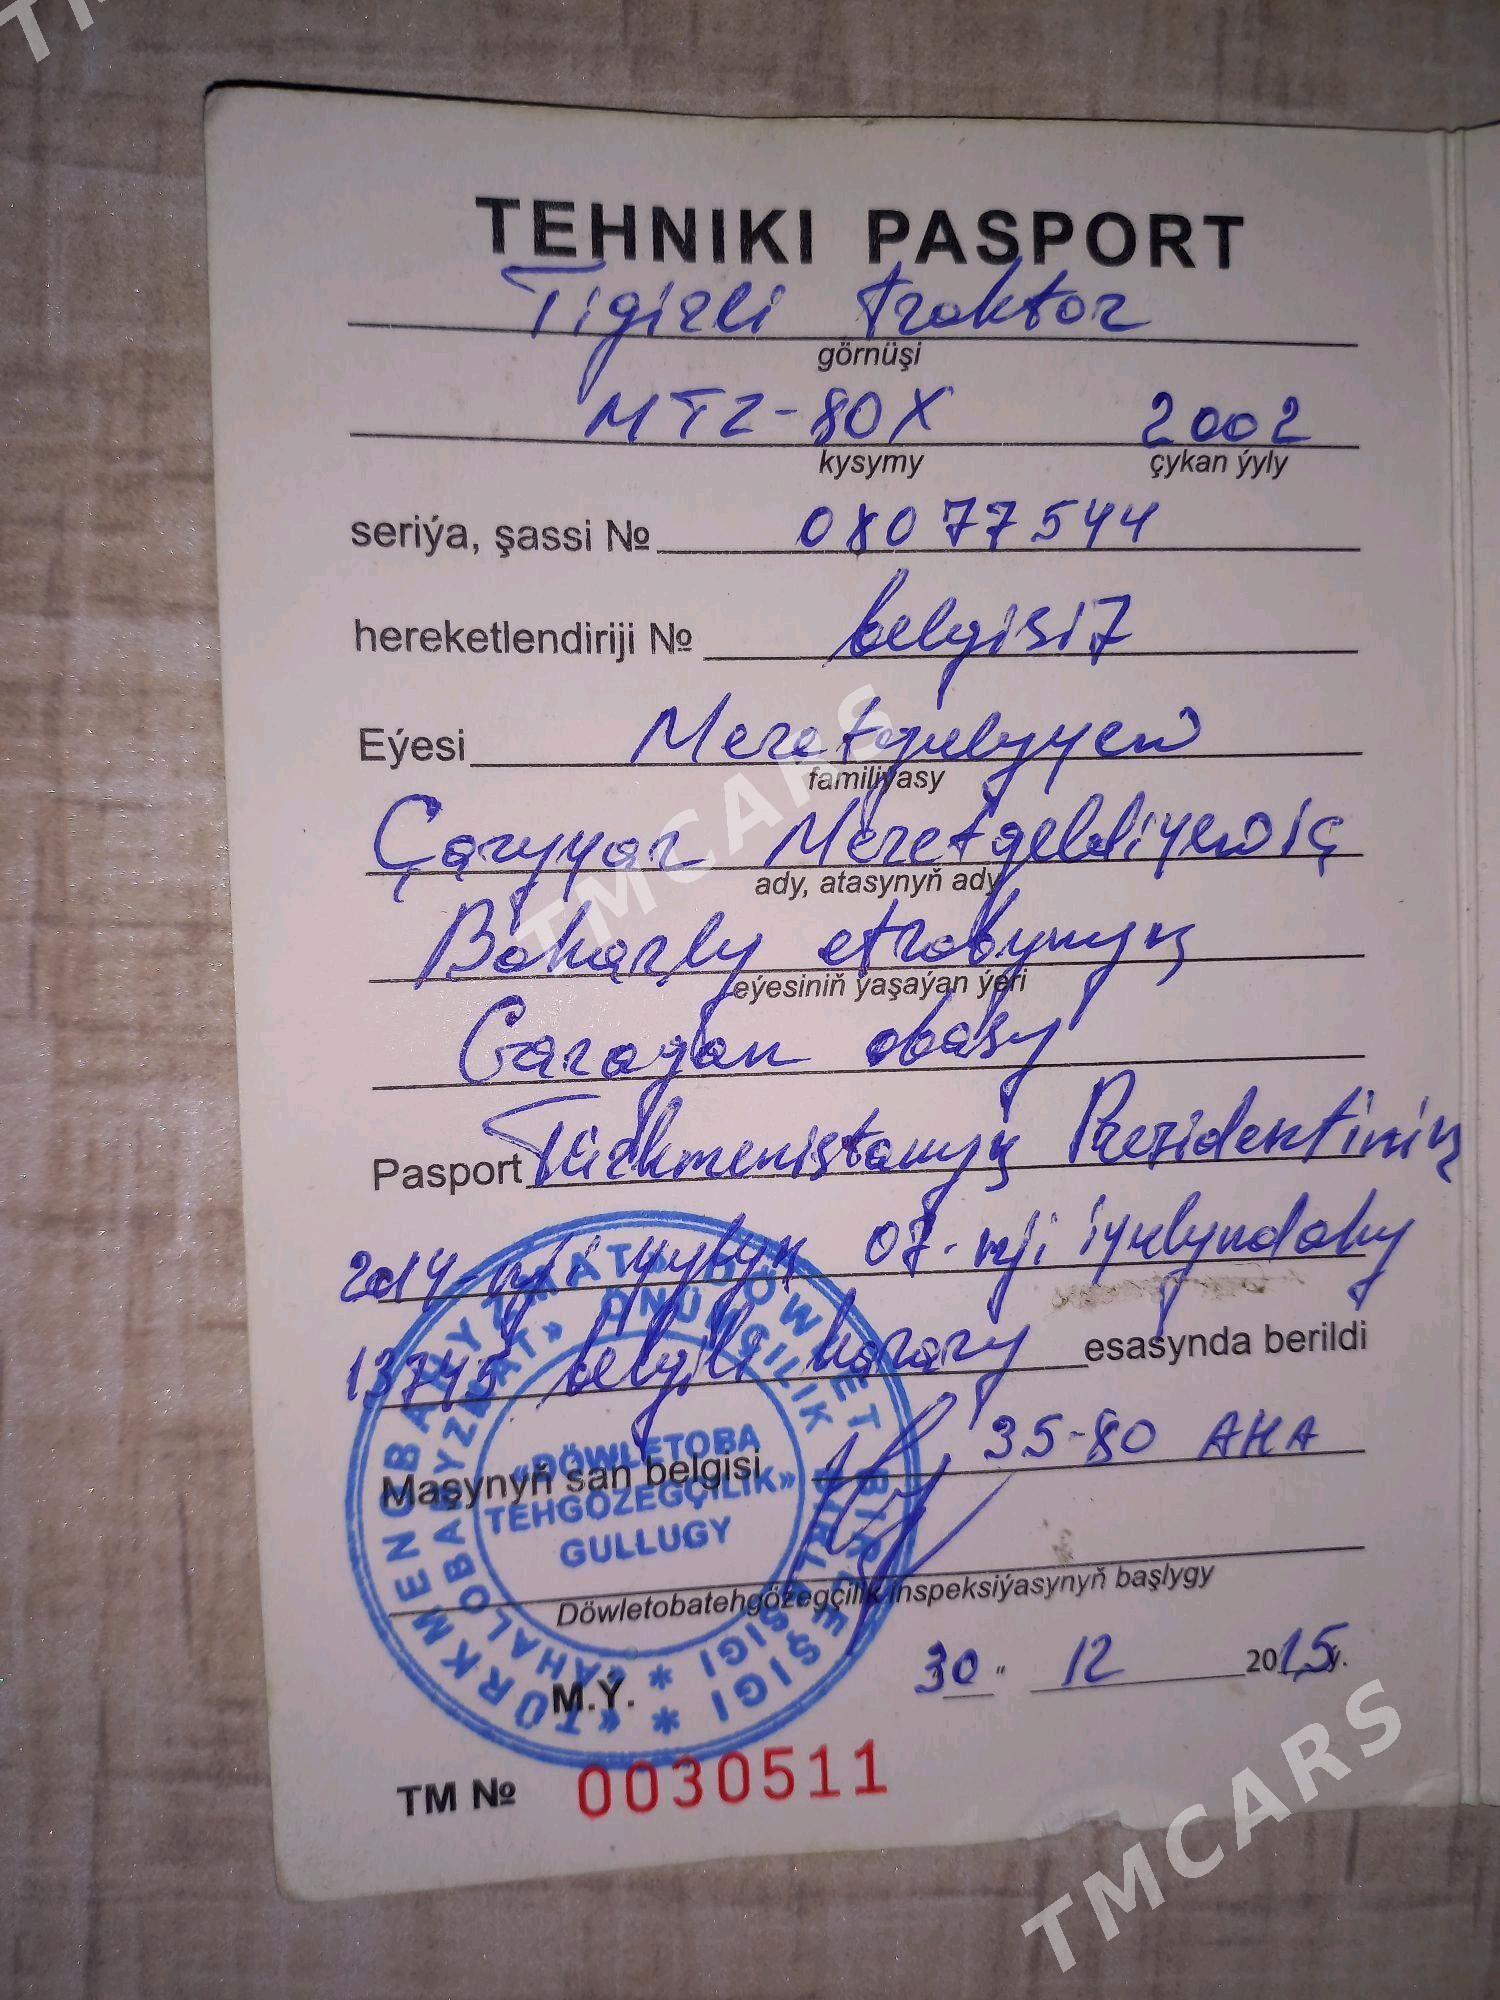 TEHNIKI PASPORT
Tigirli traktor
görnüşi
MTZ-80X 2002
kysymy çykan ýyly
seriýa, şassi № 08077544
hereketlendiriji № belgisiz
Eýesi Meretgulyyew
familiýasy
Çaryyar Meretgeldiyewiç
ady, atasynyň ady
Baharly etrabynyň
eýesiniň ýaşaýan ýeri
Garagan obasy
Pasport Türkmenistanyň Prezidentiniň
2014-nji yylyň 07-nji iyulyndaky
13745 belgili karary esasynda berildi
Maşynyň san belgisi 35-80 AHA
Döwletobatehgözegçilik inspeksiýasynyň başlygy
30 " 12 2015ý.
M.Ý.
TM № 0030511
«DÖWLETOBA
TEHGÖZEGÇILIK»
GULLUGY
«TÜRKMENGALLAÖNÜMLERI» DÖWLET BIRLEŞIGI
TMCARS
TMCARS